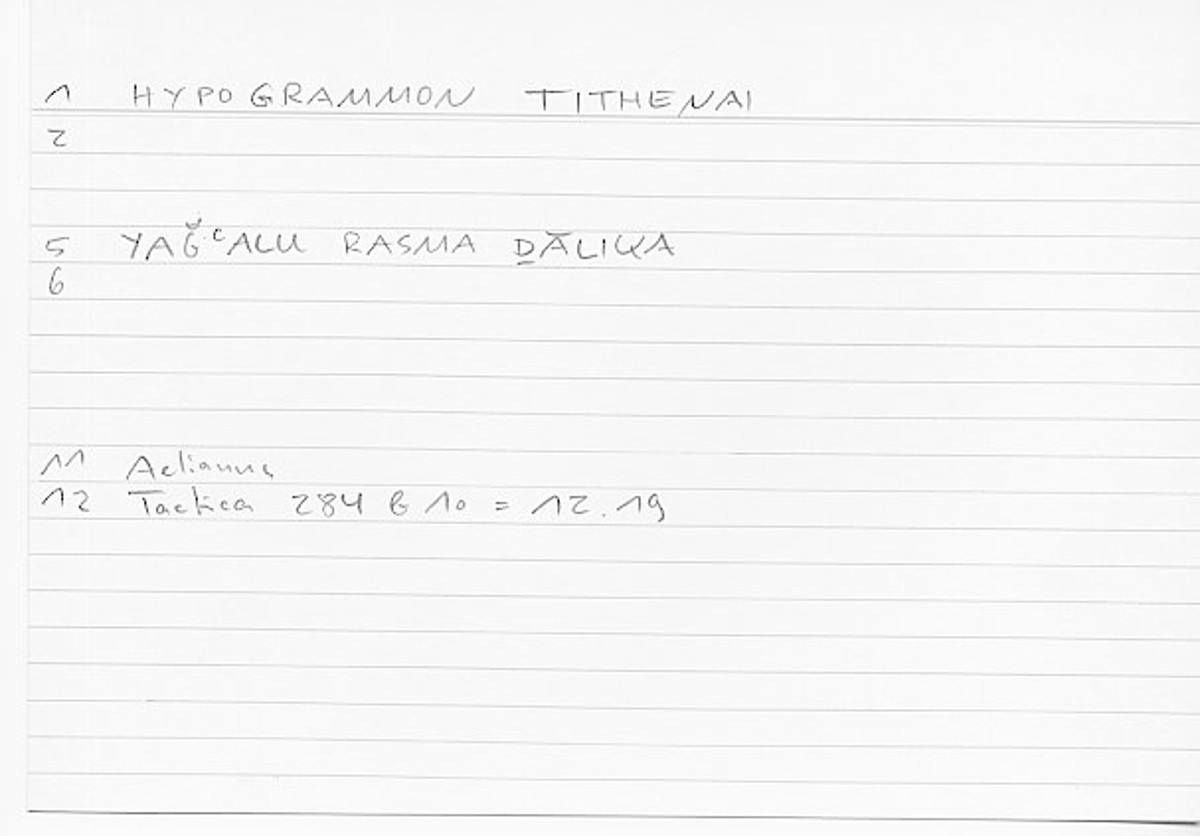 1 HYPOGRAMMON TITHENAI
2
5 YAǦʿALU RASMA ḎĀLIKA
6
11 Aelianus
12 Tactica 284 b 10 = 12.19